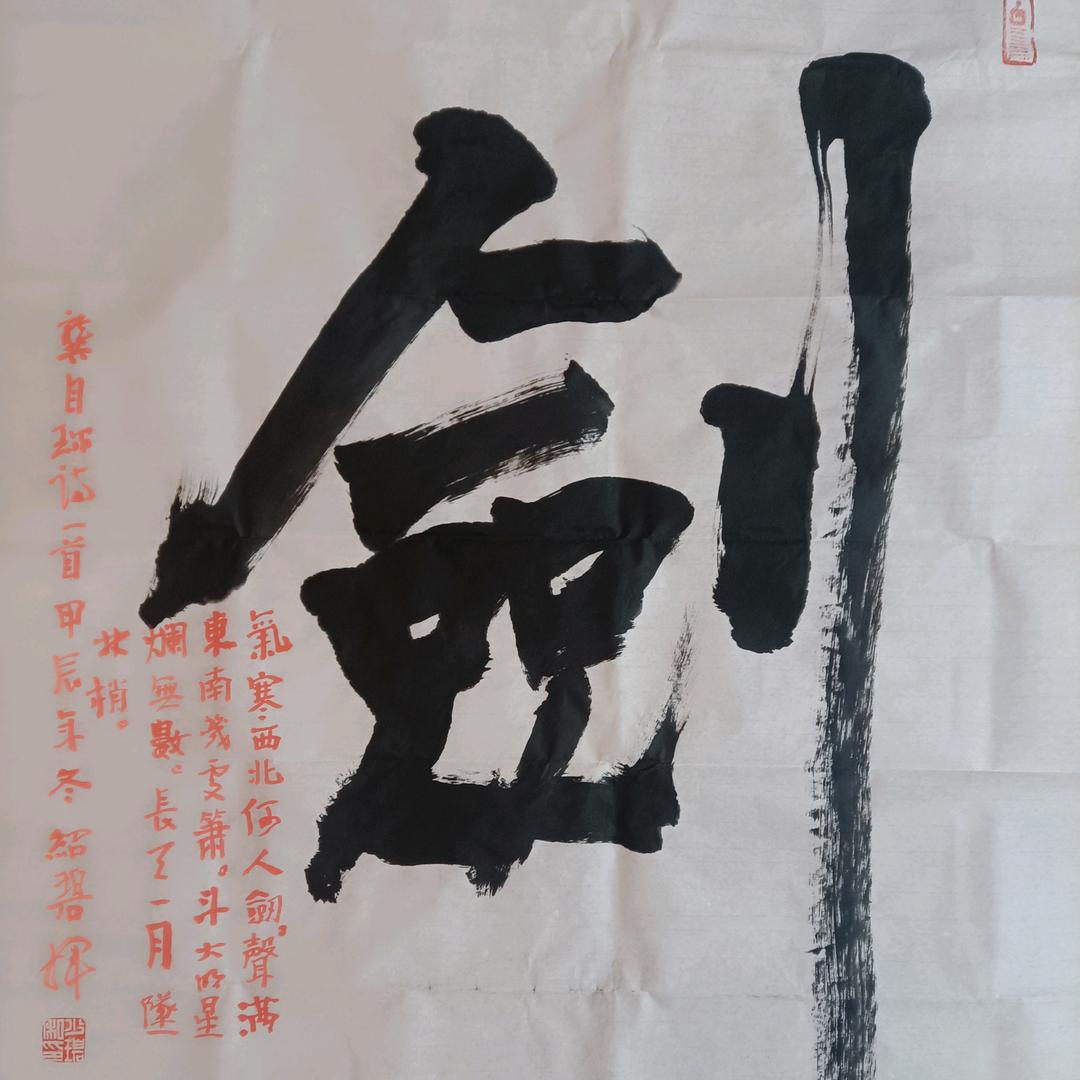 劍
氣寒西北何人劍，聲滿
東南幾處簫。斗大明星
爛無數。長天一月墜
林梢。
龔自珍詩一首甲辰年冬紹碧